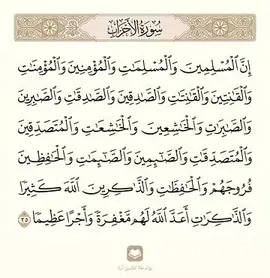 سُورَةُ الأَحْزَاب
إِنَّ ٱلْمُسْلِمِينَ وَٱلْمُسْلِمَٰتِ وَٱلْمُؤْمِنِينَ وَٱلْمُؤْمِنَٰتِ
وَٱلْقَٰنِتِينَ وَٱلْقَٰنِتَٰتِ وَٱلصَّٰدِقِينَ وَٱلصَّٰدِقَٰتِ وَٱلصَّٰبِرِينَ
وَٱلصَّٰبِرَٰتِ وَٱلْخَٰشِعِينَ وَٱلْخَٰشِعَٰتِ وَٱلْمُتَصَدِّقِينَ
وَٱلْمُتَصَدِّقَٰتِ وَٱلصَّٰٓئِمِينَ وَٱلصَّٰٓئِمَٰتِ وَٱلْحَٰفِظِينَ
فُرُوجَهُمْ وَٱلْحَٰفِظَٰتِ وَٱلذَّٰكِرِينَ ٱللَّهَ كَثِيرًا
وَٱلذَّٰكِرَٰتِ أَعَدَّ ٱللَّهُ لَهُم مَّغْفِرَةً وَأَجْرًا عَظِيمًا ٣٥